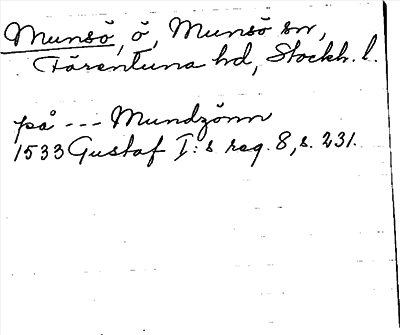 Munsö, ö, Munsö sn,
Färentuna hd, Stockh. l.
på --- Mundzönn
1533 Gustaf I:s reg. 8, s. 231.